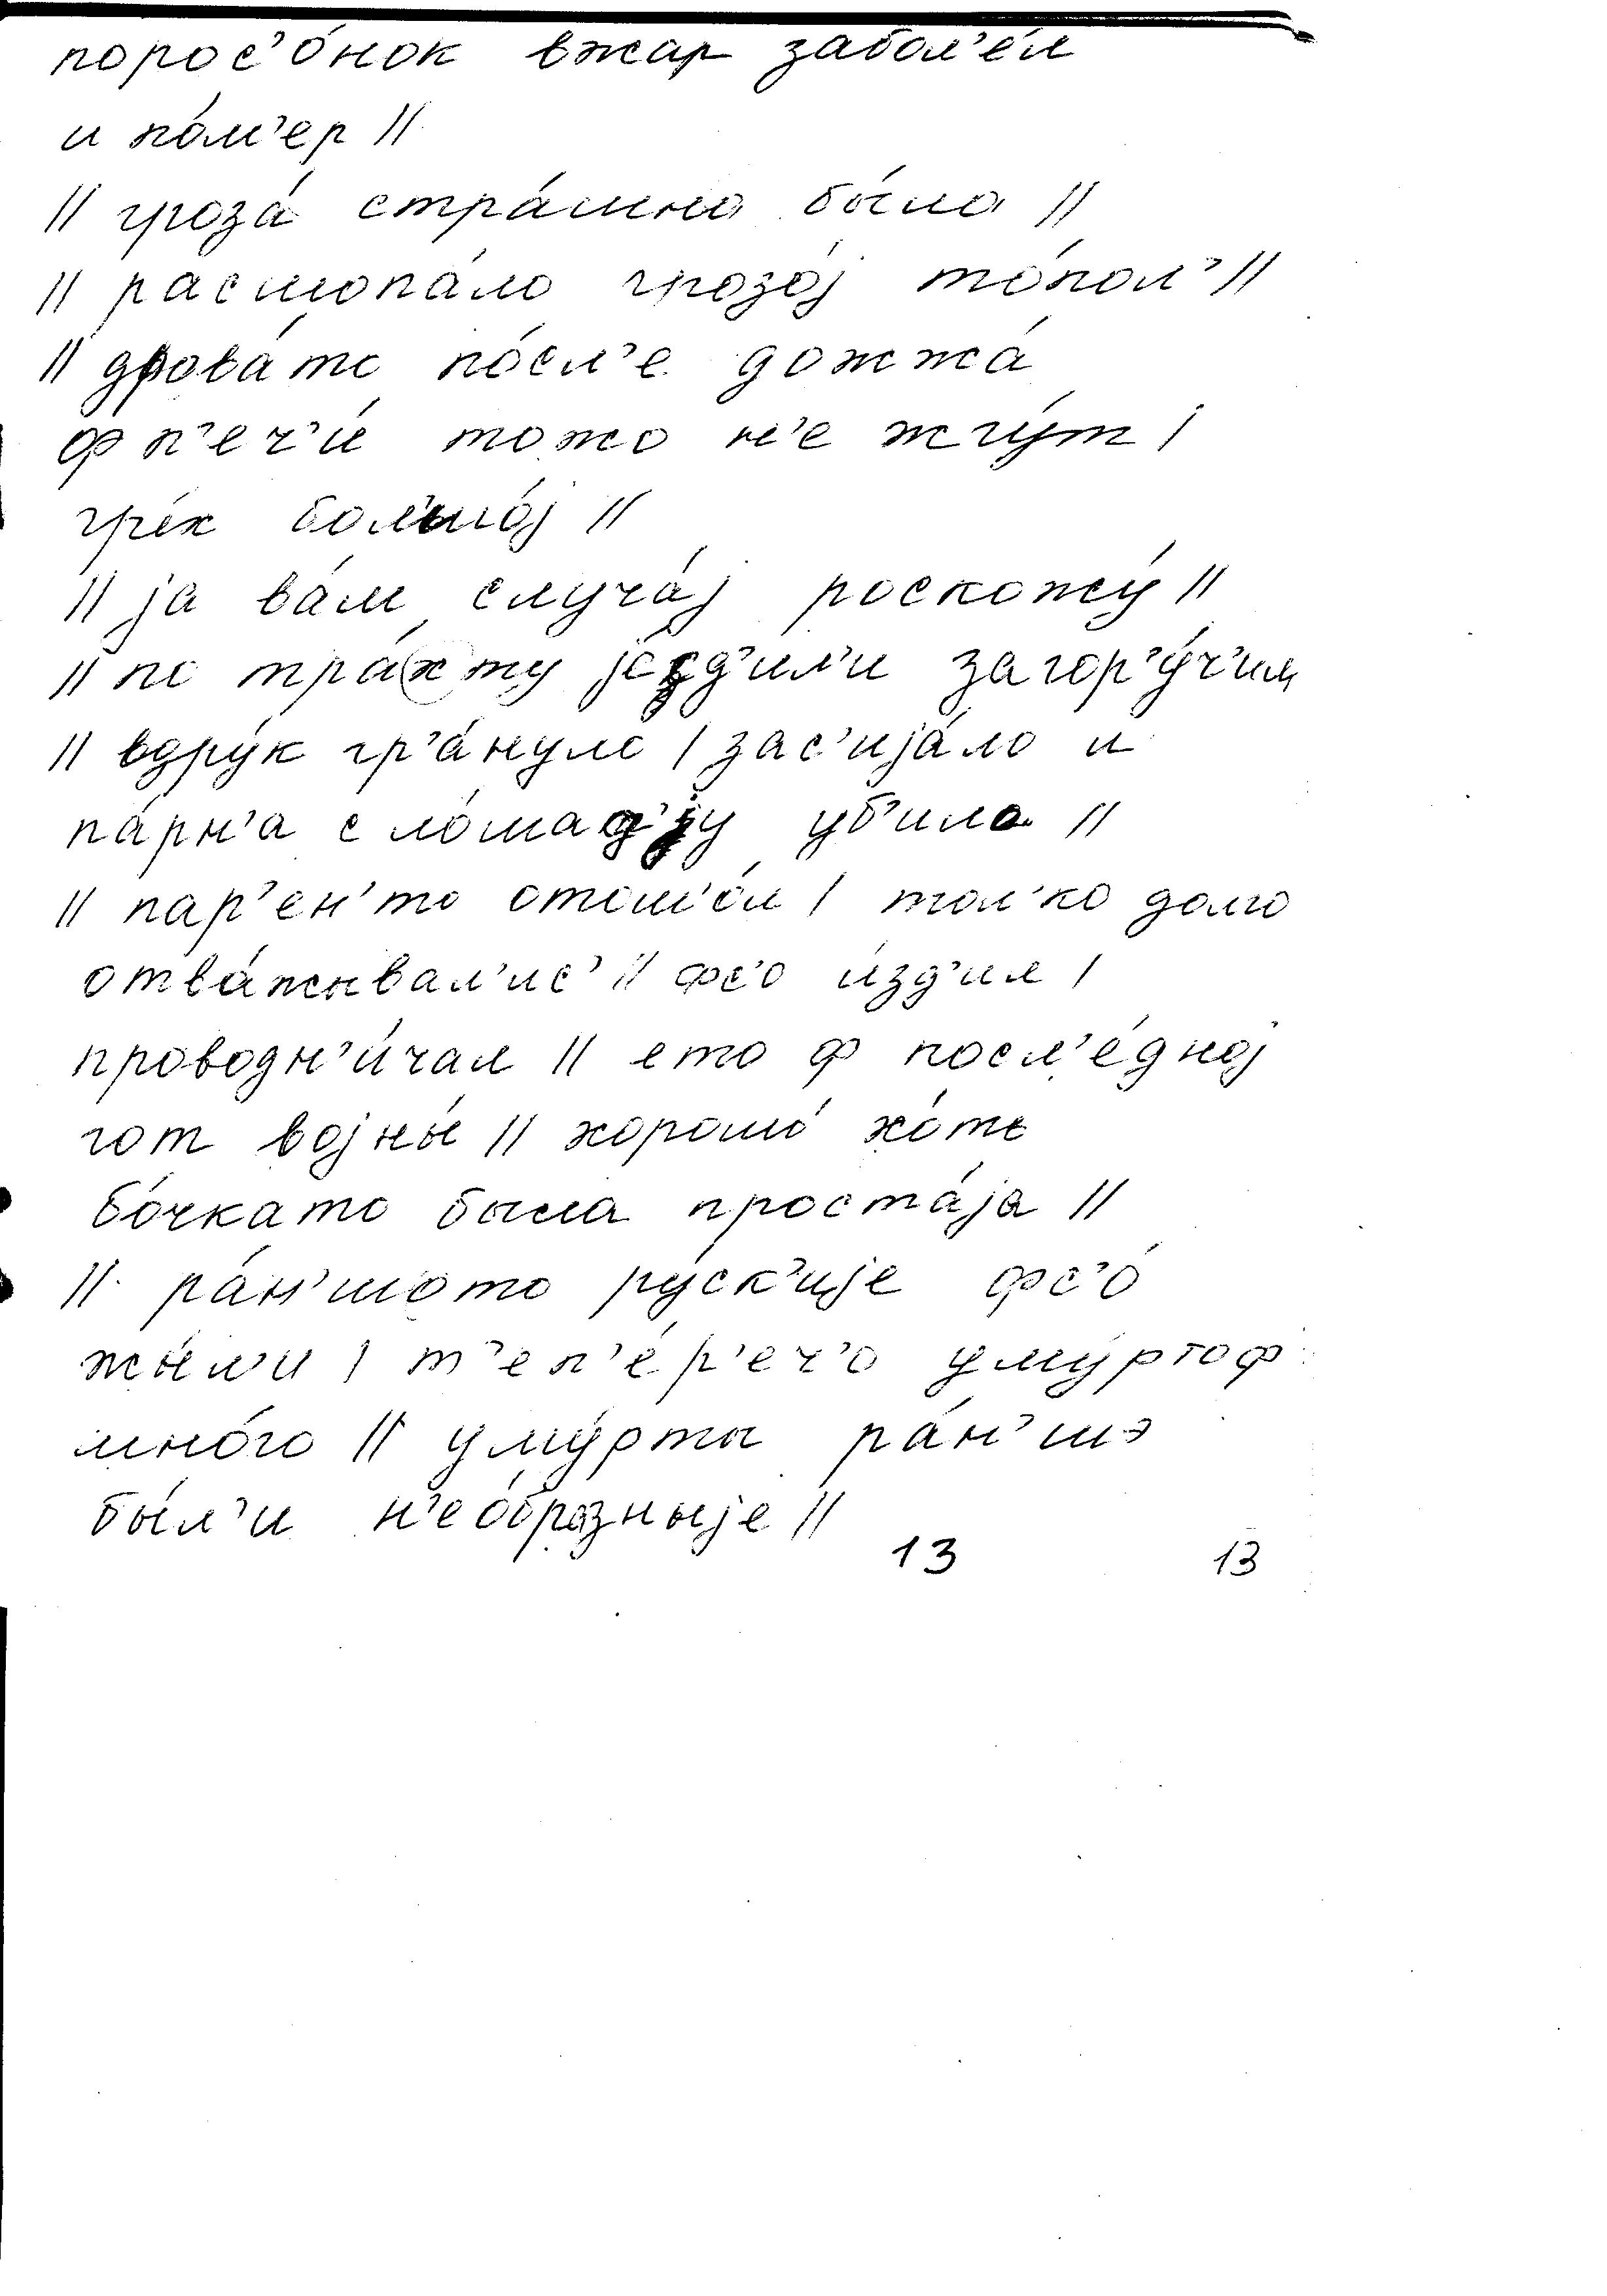 порос'о́нок вжар забол'е́л
и по́м'ер ||
|| гроза́ стра́шна бы́ла ||
|| расшопа́ло грозо́ј то́пол' ||
|| дрова́то по́сл'е дожжа́
ф п'еч'и́ тожо н'е жгу́т |
гре́х бол'шо́ј ||
|| ја ва́м случа́ј роскожу́ ||
|| по тра́хту је́зд'ил'и за гор'у́ч'им
|| вдру́к гр'а́нуло | зас'ија́ло и
па́рн'а с ло́шад'ју уб'ило ||
|| пар'ен'то отош'о́л | тол'ко долго
отва́жывал'ис' || фс'о и́зд'ил |
проводн'и́чал || ето ф посл'е́дној
гот војны́ || хорошо́ хо́то
бо́чкато была проста́ја ||
|| ра́н'шото ру́ск'ије фс'о́
жы́л'и | т'еп'е́р'еч'о уму́ртоф
мно́го || уму́рты ра́н'шэ
бы́л'и н'ео́бразныје ||
13 13